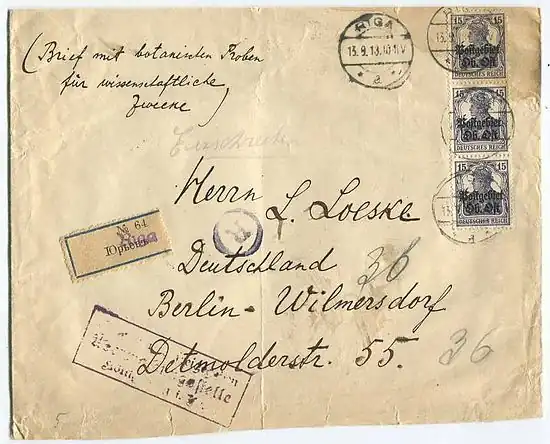 RIGA
13.9.18.10-11V
a
RIGA
15 15
Postgebiet
Ob. Ost
DEUTSCHES REICH
15 15
Postgebiet
Ob. Ost
DEUTSCHES REICH
15 15
Postgebiet
Ob. Ost
DEUTSCHES REICH
(Brief mit botanischen Proben
für wissenschaftliche
Zwecke)
Einschreiben
Herrn L. Loeske
R
№ 64
Юрьевъ
Riga
Deutschland
36
Berlin-Wilmersdorf
Detmolderstr. 55.
36